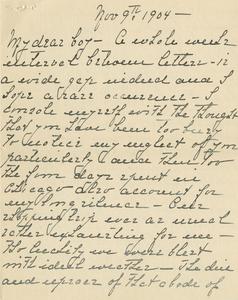 Nov 9th 1904 —
My dear boy — A whole week
interval between letters — is
a wide gap indeed and I
hope a rare occurrence — I
console myself with the thought
that you have been too busy
to notice my neglect of you
particularly and then too
the four days spent in
Chicago also account for
my long silence — Our
shopping trip ever as usual
rather exhausting for me —
tho luckily we were blest
with ideal weather — The din
and uproar of that abode of